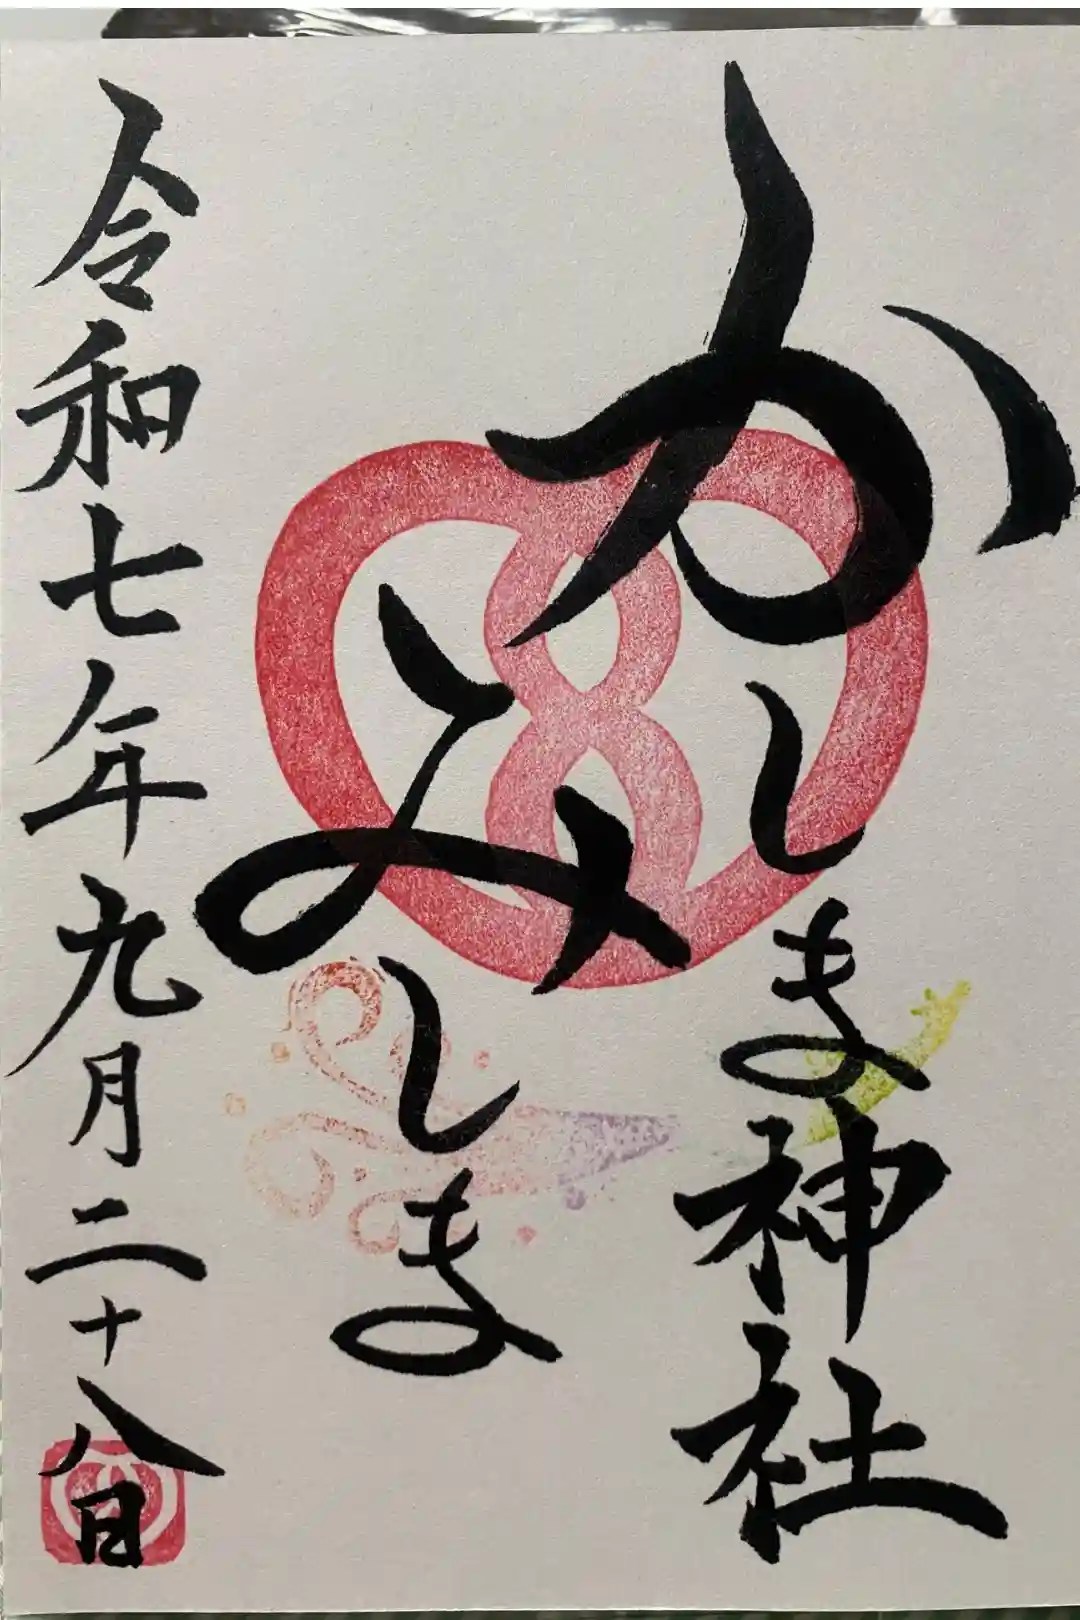 かしま神社
みしま
令和七年九月二十八日